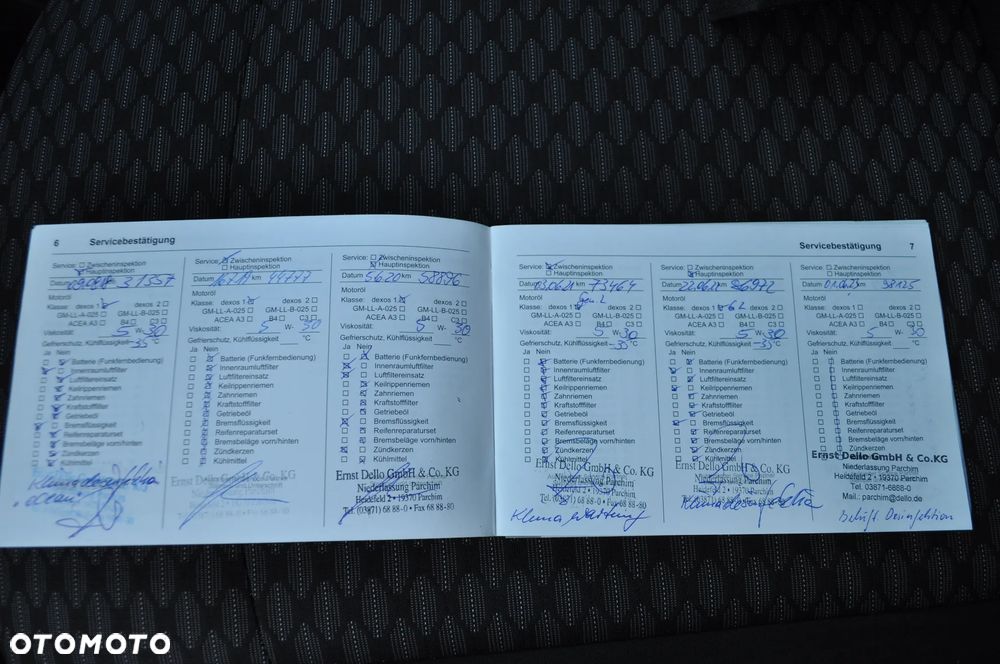 6 Servicebestätigung
Service: Zwischeninspektion
Hauptinspektion
Datum 31557
Motoröl
Klasse: dexos 1 dexos 2
GM-LL-A-025 GM-LL-B-025
ACEA A3 B4 C3
Viskosität: 5 W-30
Gefrierschutz, Kühlflüssigkeit -35 °C
Ja Nein
Batterie (Funkfernbedienung)
Innenraumluftfilter
Luftfiltereinsatz
Keilrippenriemen
Zahnriemen
Kraftstofffilter
Getriebeöl
Bremsflüssigkeit
Reifenreparaturset
Bremsbeläge vorn/hinten
Zündkerzen
Kühlmittel
Service: Zwischeninspektion
Hauptinspektion
Datum km 44777
Motoröl
Klasse: dexos 1 dexos 2
GM-LL-A-025 GM-LL-B-025
ACEA A3 B4 C3
Viskosität: 5 W-30
Gefrierschutz, Kühlflüssigkeit °C
Ja Nein
Batterie (Funkfernbedienung)
Innenraumluftfilter
Luftfiltereinsatz
Keilrippenriemen
Zahnriemen
Kraftstofffilter
Getriebeöl
Bremsflüssigkeit
Reifenreparaturset
Bremsbeläge vorn/hinten
Zündkerzen
Kühlmittel
Ernst Dello GmbH & Co. KG
Service: Zwischeninspektion
Hauptinspektion
Datum 5620 km 58896
Motoröl
Klasse: dexos 1 dexos 2
GM-LL-A-025 GM-LL-B-025
ACEA A3 B4 C3
Viskosität: 5 W-30
Gefrierschutz, Kühlflüssigkeit °C
Ja Nein
Batterie (Funkfernbedienung)
Innenraumluftfilter
Luftfiltereinsatz
Keilrippenriemen
Zahnriemen
Kraftstofffilter
Getriebeöl
Bremsflüssigkeit
Reifenreparaturset
Bremsbeläge vorn/hinten
Zündkerzen
Kühlmittel
Ernst Dello GmbH & Co. KG
Niederlassung Parchim
Heidefeld 2 • 19370 Parchim
Tel. (03871) 68 88-0 • Fax 68 88-80
Servicebestätigung 7
Service: Zwischeninspektion
Hauptinspektion
Datum 03.06.21 km 73464
Motoröl
Klasse: dexos 1 Gen. 2 dexos 2
GM-LL-A-025 GM-LL-B-025
ACEA A3 B4 C3
Viskosität: 5 W-30
Gefrierschutz, Kühlflüssigkeit -35 °C
Ja Nein
Batterie (Funkfernbedienung)
Innenraumluftfilter
Luftfiltereinsatz
Keilrippenriemen
Zahnriemen
Kraftstofffilter
Getriebeöl
Bremsflüssigkeit
Reifenreparaturset
Bremsbeläge vorn/hinten
Zündkerzen
Kühlmittel
Ernst Dello GmbH & Co. KG
Niederlassung Parchim
Heidefeld 2 • 19370 Parchim
Tel. (03871) 68 88-0 • Fax 68 88-80
Klima Wartung
Service: Zwischeninspektion
Hauptinspektion
Datum km 86972
Motoröl
Klasse: dexos 1 G2 dexos 2
GM-LL-A-025 GM-LL-B-025
ACEA A3 B4 C3
Viskosität: 5 W-30
Gefrierschutz, Kühlflüssigkeit -35 °C
Ja Nein
Batterie (Funkfernbedienung)
Innenraumluftfilter
Luftfiltereinsatz
Keilrippenriemen
Zahnriemen
Kraftstofffilter
Getriebeöl
Bremsflüssigkeit
Reifenreparaturset
Bremsbeläge vorn/hinten
Zündkerzen
Kühlmittel
Ernst Dello GmbH & Co. KG
Niederlassung Parchim
Heidefeld 2 • 19370 Parchim
Service: Zwischeninspektion
Hauptinspektion
Datum km 98125
Motoröl
Klasse: dexos 1 dexos 2
GM-LL-A-025 GM-LL-B-025
ACEA A3 B4 C3
Viskosität: 5 W-30
Gefrierschutz, Kühlflüssigkeit °C
Ja Nein
Batterie (Funkfernbedienung)
Innenraumluftfilter
Luftfiltereinsatz
Keilrippenriemen
Zahnriemen
Kraftstofffilter
Getriebeöl
Bremsflüssigkeit
Reifenreparaturset
Bremsbeläge vorn/hinten
Zündkerzen
Kühlmittel
Ernst Dello GmbH & Co. KG
Niederlassung Parchim
Heidefeld 2 • 19370 Parchim
Tel. 03871-6888-0
Mail.: parchim@dello.de
Desinfektion
OTOMOTO